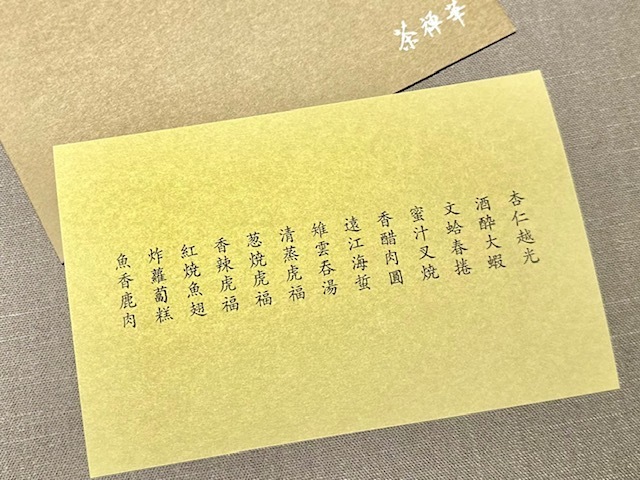 茶禅華
杏仁越光
酒醉大蝦
文蛤春捲
蜜汁叉燒
香醋肉圓
遠江海蜇
雉雲吞湯
清蒸虎福
葱燒虎福
香辣虎福
紅燒魚翅
炸蘿蔔糕
魚香鹿肉